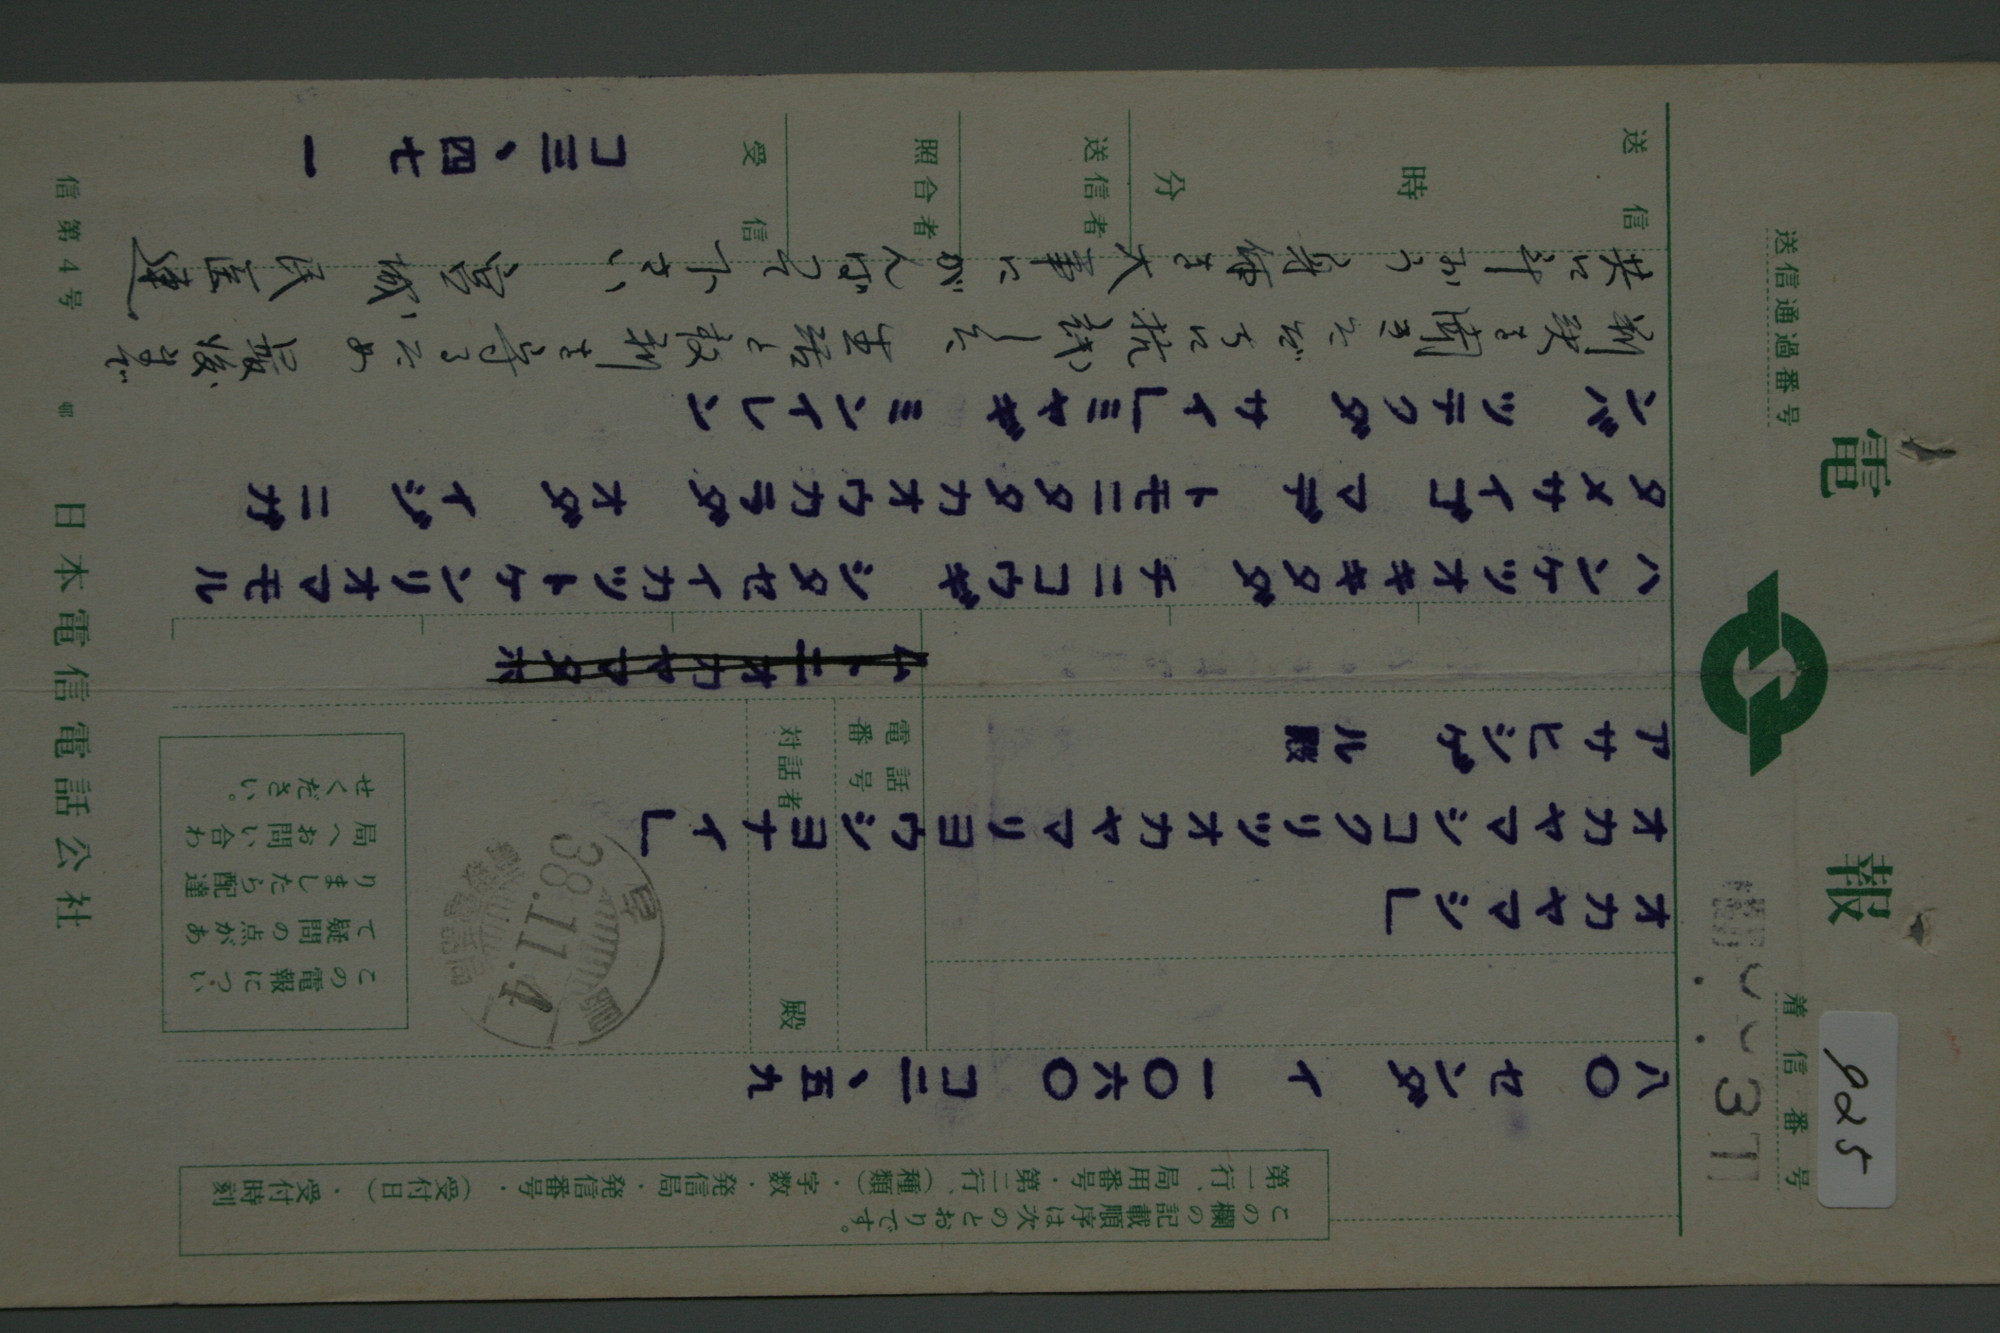 電報
送信通過番号
着信番号
925
この欄の記載順序は次のとおりです。
第一行、局用番号・第二行、(種類)・字数・発信局・発信番号・(受付日)・受付時刻
八〇 センダ イ 一〇六〇 コ二、五九
オカヤマシ」
オカヤマシコクリツオカヤマリヨウシヨナイ」
アサヒシゲ ル殿
電話番号
対話者 殿
この電報につい
て疑問の点があ
りましたら配達
局へお問い合わ
せください。
38.11.4
ハンケツオキキタダ チニコウギ シタセイカツトケンリオマモル
タメサイゴ マデ トモニタタカオウカラダ オダ イジ ニガ
ンバ ツテクダ サイ」ミヤギ ミンイレン
判決を聞きただちに抗議した、生活と権利を守るため最後まで
共に斗かう 身体を大事にがんばって下さい 宮城民医連
送信 時 分
送信者
照合者
受信
コ三、四七 一
信第4号
日本電信電話公社